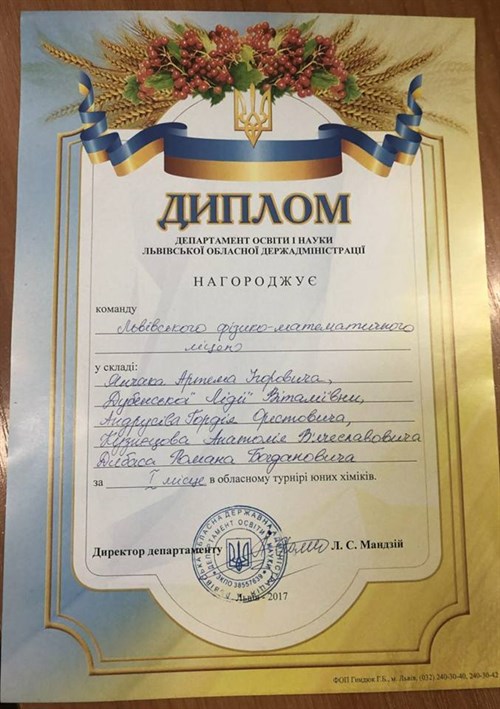 ДИПЛОМ
ДЕПАРТАМЕНТ ОСВІТИ І НАУКИ
ЛЬВІВСЬКОЇ ОБЛАСНОЇ ДЕРЖАДМІНІСТРАЦІЇ
НАГОРОДЖУЄ
команду
Львівського фізико-математичного
ліцею
у складі:
Артема Ігоровича,
Дубенської Лідії Віталіївни,
Андрусіва Гордія Орестовича,
Кузнєцова Анатолія Вячеславовича
Романа Богдановича
за І місце в обласному турнірі юних хіміків.
Директор департаменту Л. С. Мандзій
Львів - 2017
ФОП Гимдюк Г.Б., м. Львів, (032) 240-30-40, 240-30-42